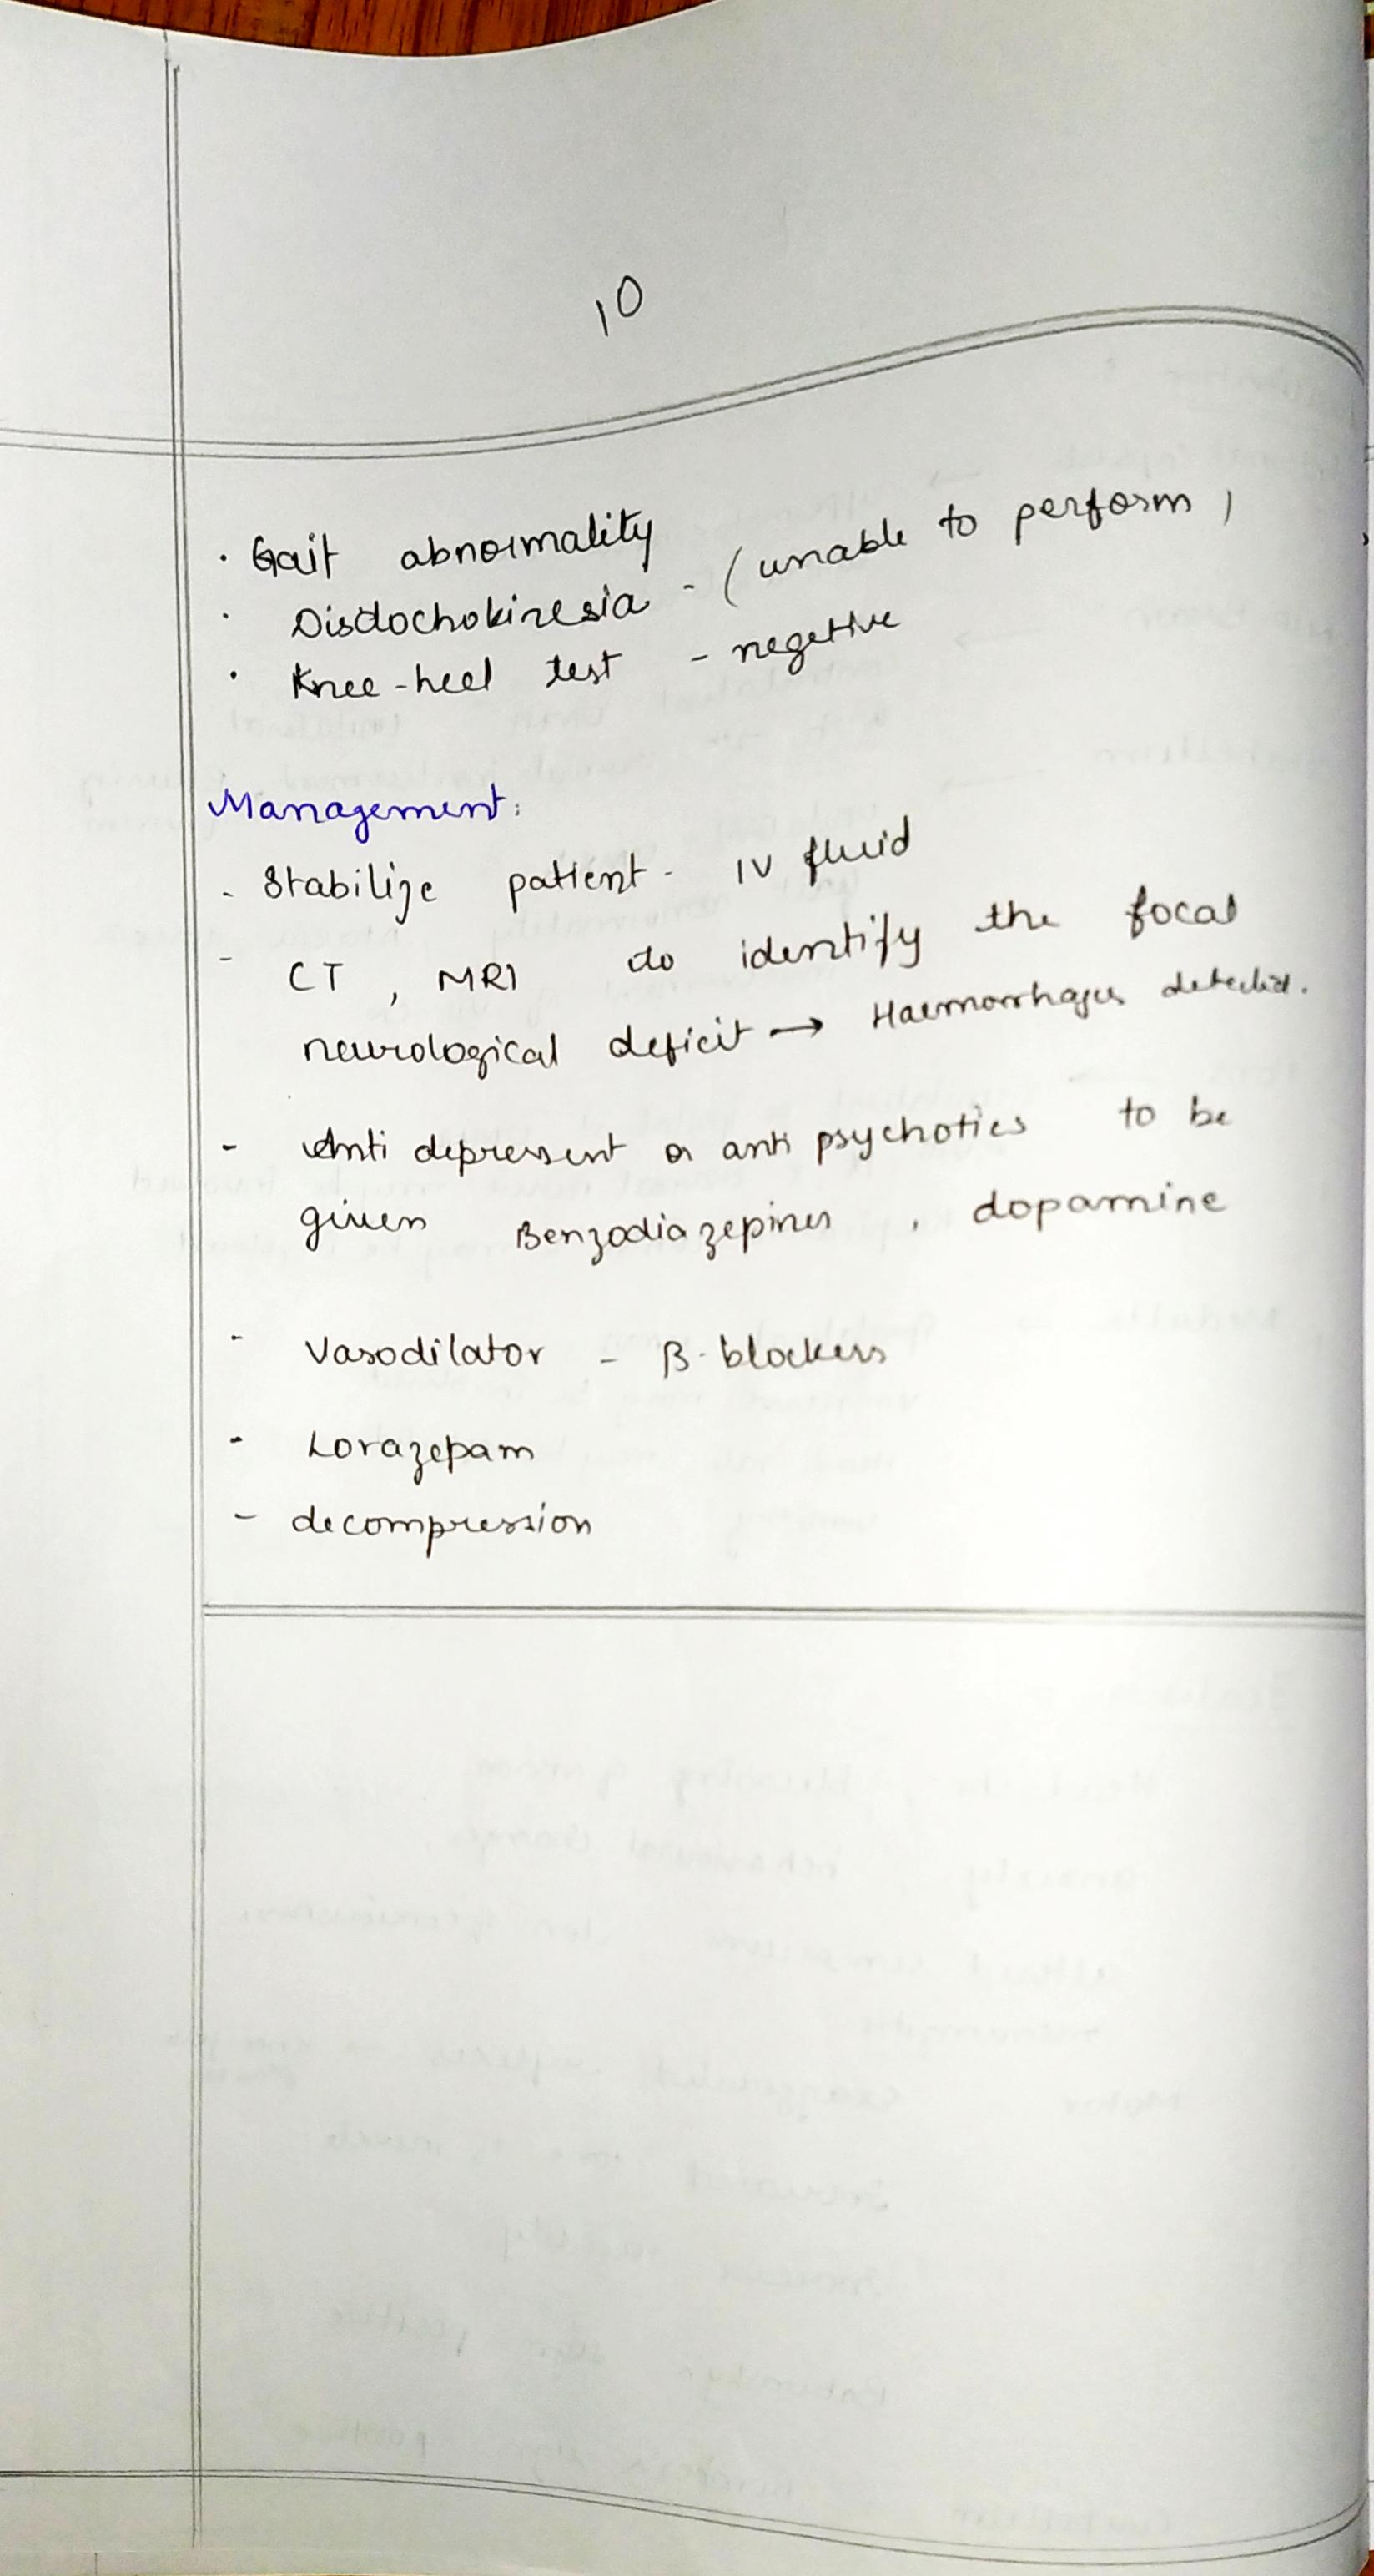 10
· Gait abnormality
· Disdochokinesia - (unable to perform)
· Knee-heel test - negetive
Management:
- Stabilize patient - IV fluid
- CT, MRI to identify the focal
neurological deficit → Haemorrhages detected.
- Anti depressent or anti psychotics to be
given Benzodiazepines, dopamine
- Vasodilator - β-blockers
- Lorazepam
- decompression